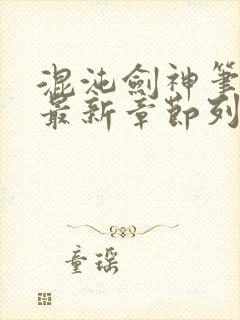 混沌劍神筆
最新章節列
童瑤